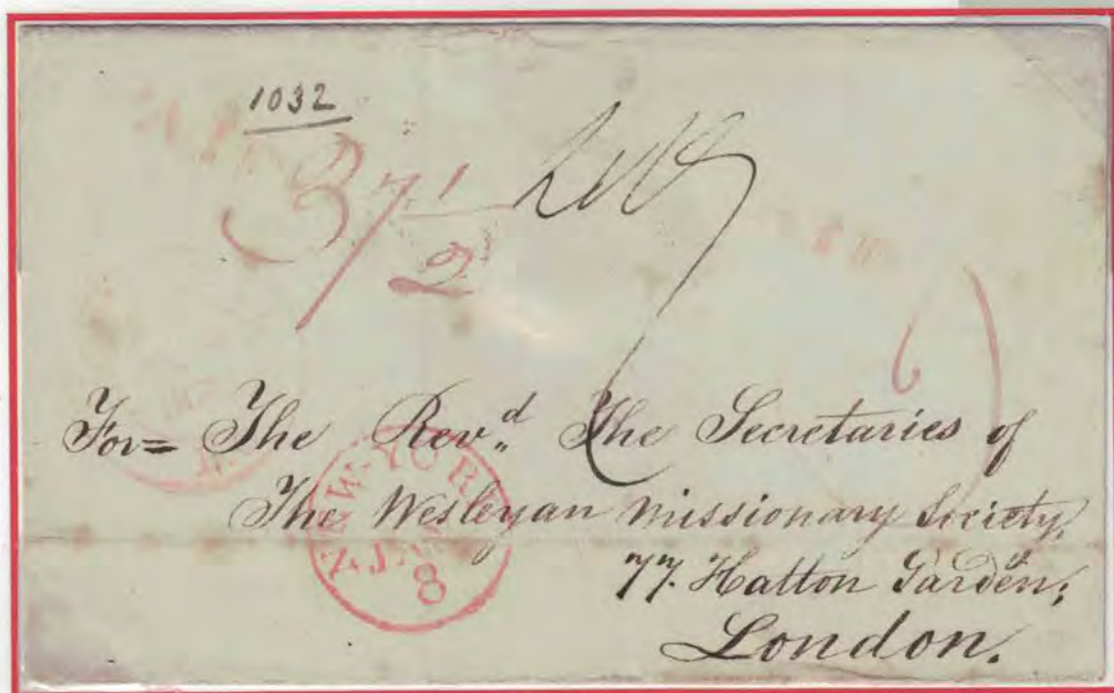 1032
37 1/2
6
For= The Rev.d The Secretaries of
The Wesleyan Missionary Society,
77. Hatton Garden,
London.
NEW-YORK
8